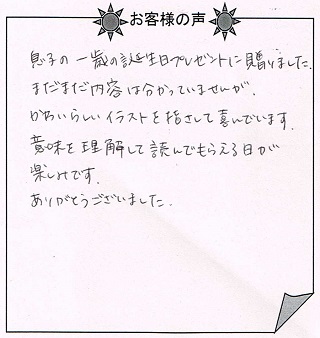 お客様の声
息子の一歳の誕生日プレゼントに贈りました。
まだまだ内容は分かっていませんが、
かわいらしいイラストを指さして喜んでいます。
意味を理解して読んでもらえる日が
楽しみです。
ありがとうございました。